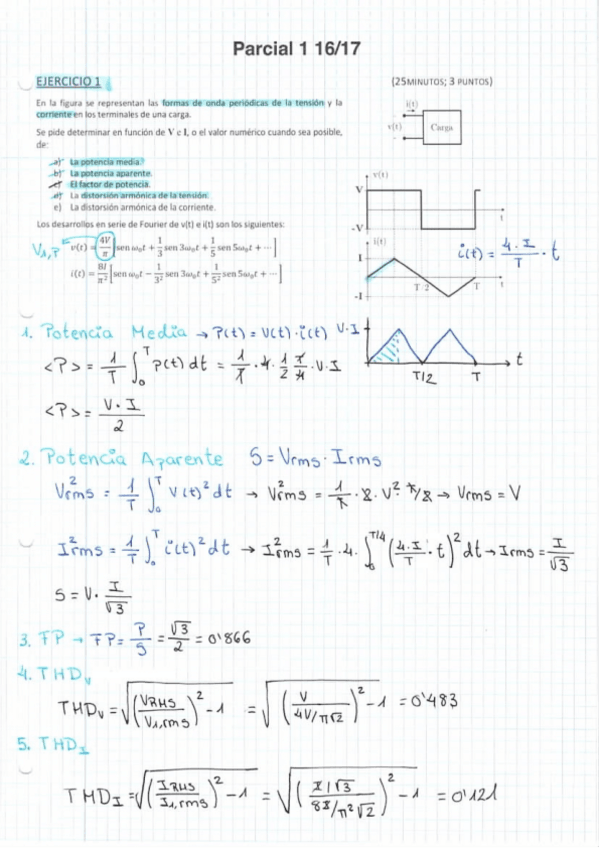 Parcial 1 16/17
EJERCICIO 1 (25MINUTOS; 3 PUNTOS)
En la figura se representan las formas de onda periódicas de la tensión y la
corriente en los terminales de una carga.
Se pide determinar en función de V e I, o el valor numérico cuando sea posible,
de:
a) La potencia media.
b) La potencia aparente.
c) El factor de potencia.
d) La distorsión armónica de la tensión.
e) La distorsión armónica de la corriente.
i(t)
v(t) Carga
Los desarrollos en serie de Fourier de v(t) e i(t) son los siguientes:
V₁,p v(t) = 4V/π [sen ω₀t + 1/3 sen 3ω₀t + 1/5 sen 5ω₀t + ⋯]
i(t) = 8I/π² [sen ω₀t − 1/3² sen 3ω₀t + 1/5² sen 5ω₀t + ⋯]
v(t)
V
t
-V
i(t)
I
T/2 T t
-I
i(t) = 4·I/T · t
1. Potencia Media → P(t) = V(t)·i(t)
V·I
T/2 T t
<P> = 1/T ∫₀ᵀ p(t) dt = 1/T · 4 · 1/2 T/4 · V·I
<P> = V·I/2
2. Potencia Aparente S = Vrms · Irms
V²rms = 1/T ∫₀ᵀ V(t)² dt → V²rms = 1/T · 2 · V² · T/2 → Vrms = V
I²rms = 1/T ∫₀ᵀ i(t)² dt → I²rms = 1/T · 4 · ∫₀^(T/4) (4·I/T · t)² dt → Irms = I/√3
S = V · I/√3
3. FP → FP = P/S = √3/2 = 0'866
4. THDv
THDv = √((VRMS/V1,rms)² - 1) = √((V/(4V/π√2))² - 1) = 0'483
5. THDI
THDI = √((IRMS/I1,rms)² - 1) = √((I/√3 / (8I/π²√2))² - 1) = 0'121